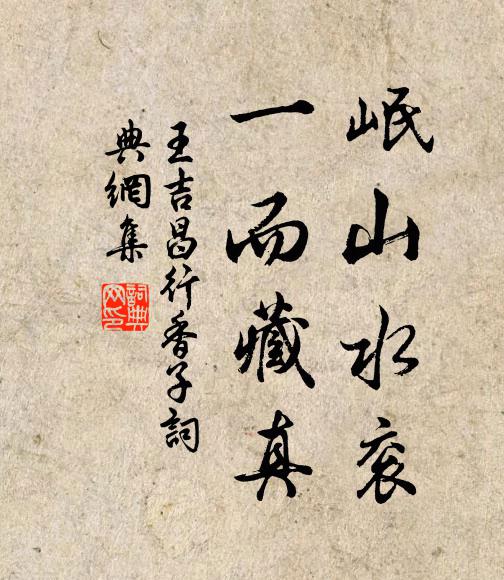 岷山水衮
一而藏真
王吉昌行香子詞
典網集
詞典
网印